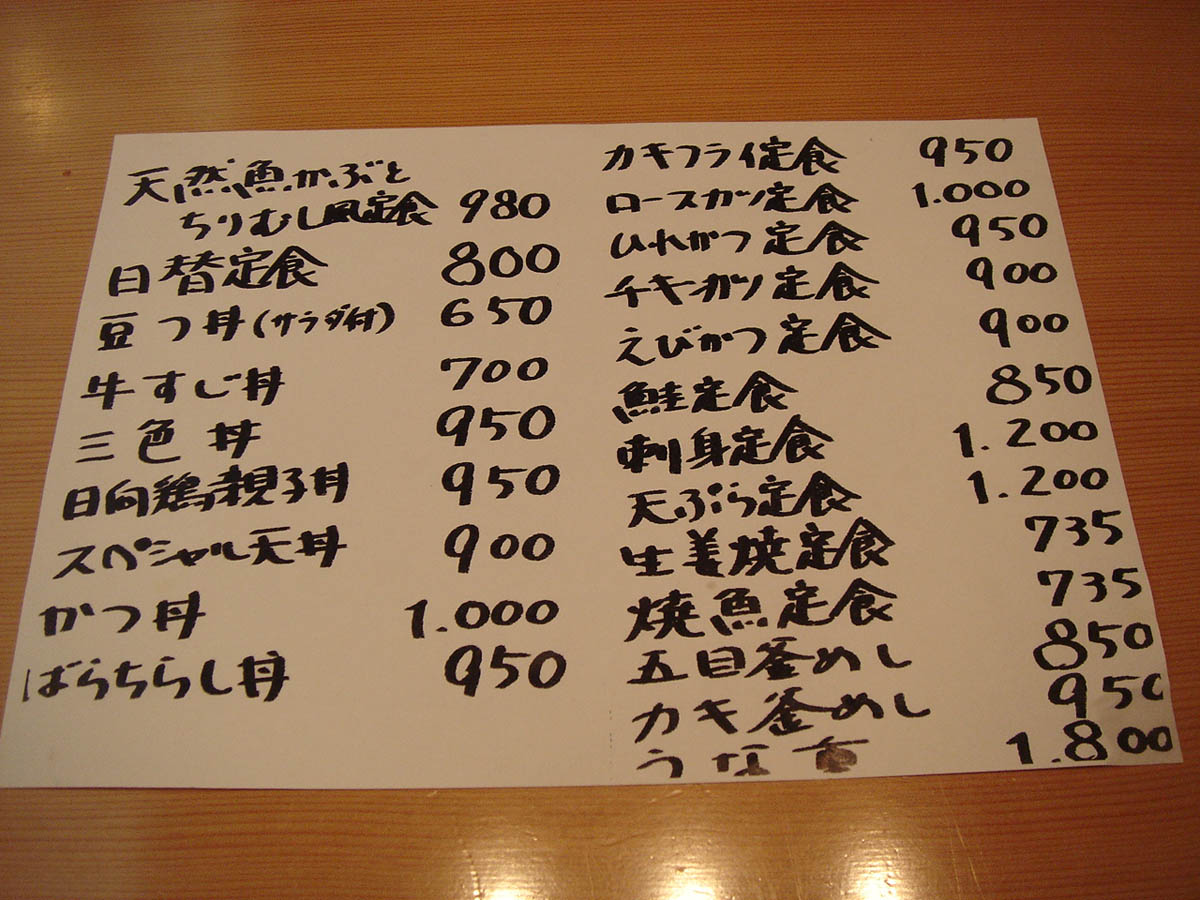 天然魚かぶと
ちりむし風定食 980
日替定食 800
豆つ丼(サラダ付) 650
牛すじ丼 700
三色丼 950
日向鶏親子丼 950
スペシャル天丼 900
かつ丼 1.000
ばらちらし丼 950
カキフライ定食 950
ロースカツ定食 1.000
ひれかつ定食 950
チキカツ定食 900
えびかつ定食 900
鮭定食 850
刺身定食 1.200
天ぷら定食 1.200
生姜焼定食 735
焼魚定食 735
五目釜めし 850
カキ釜めし 950
うな重 1.800